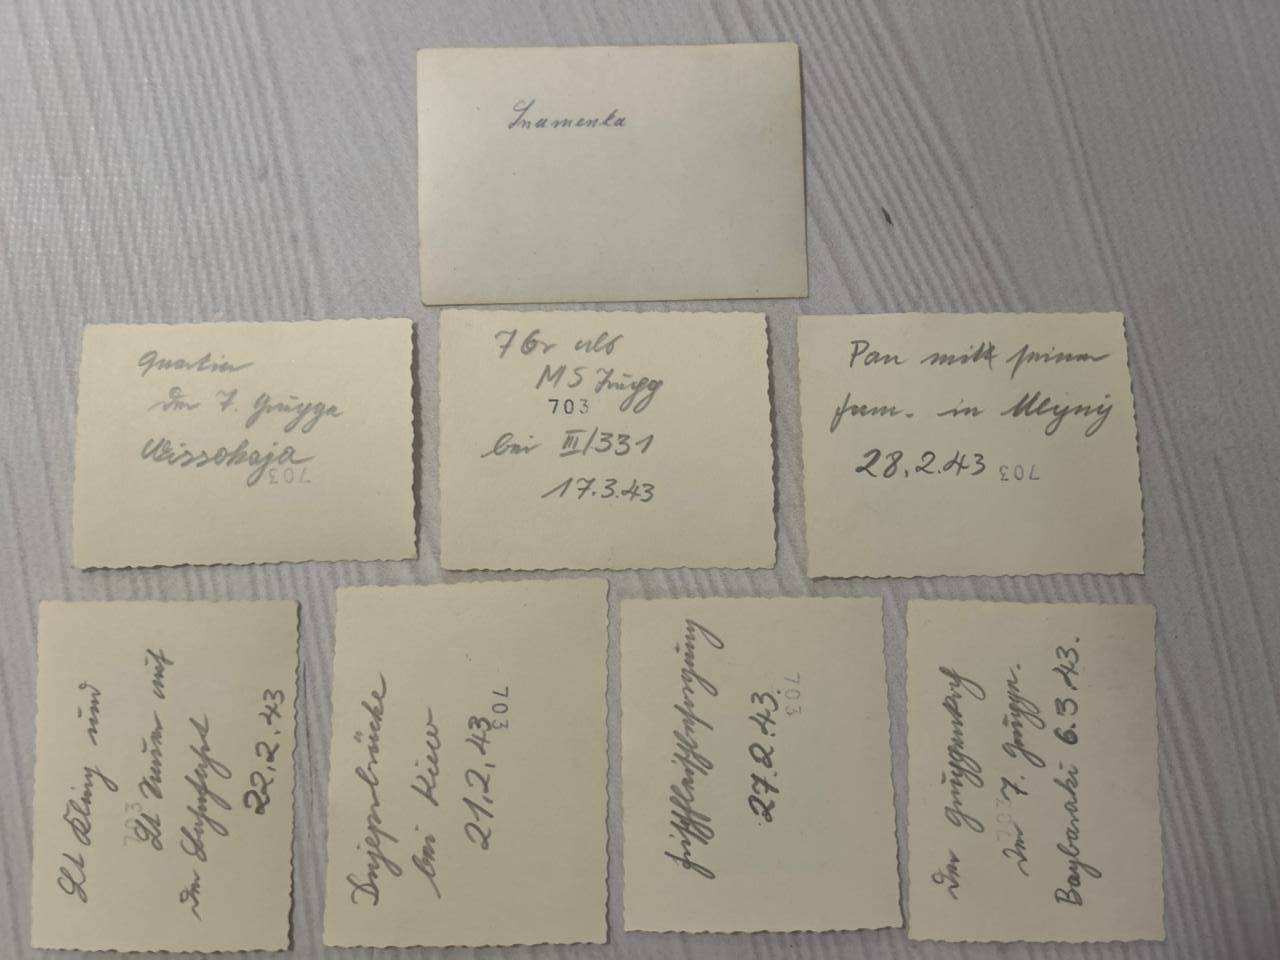 Snamenka
Quartier
der 7. Gruppe
Wissokaja
703
7 Gr als
MS Zugg
703
bei III/331
17.3.43
Pan mitt seiner
fam. in Mlyny
28.2.43 703
Lt Kling und
Lt auf
703
der
22.2.43
Dnjeprbrücke
bei Kiew
21.2.43
703
Frischfleischbesorgung
27.2.43.
703
der Gruppenkopf
der 7. Gruppe.
703
Baybaraki 6.3.43.